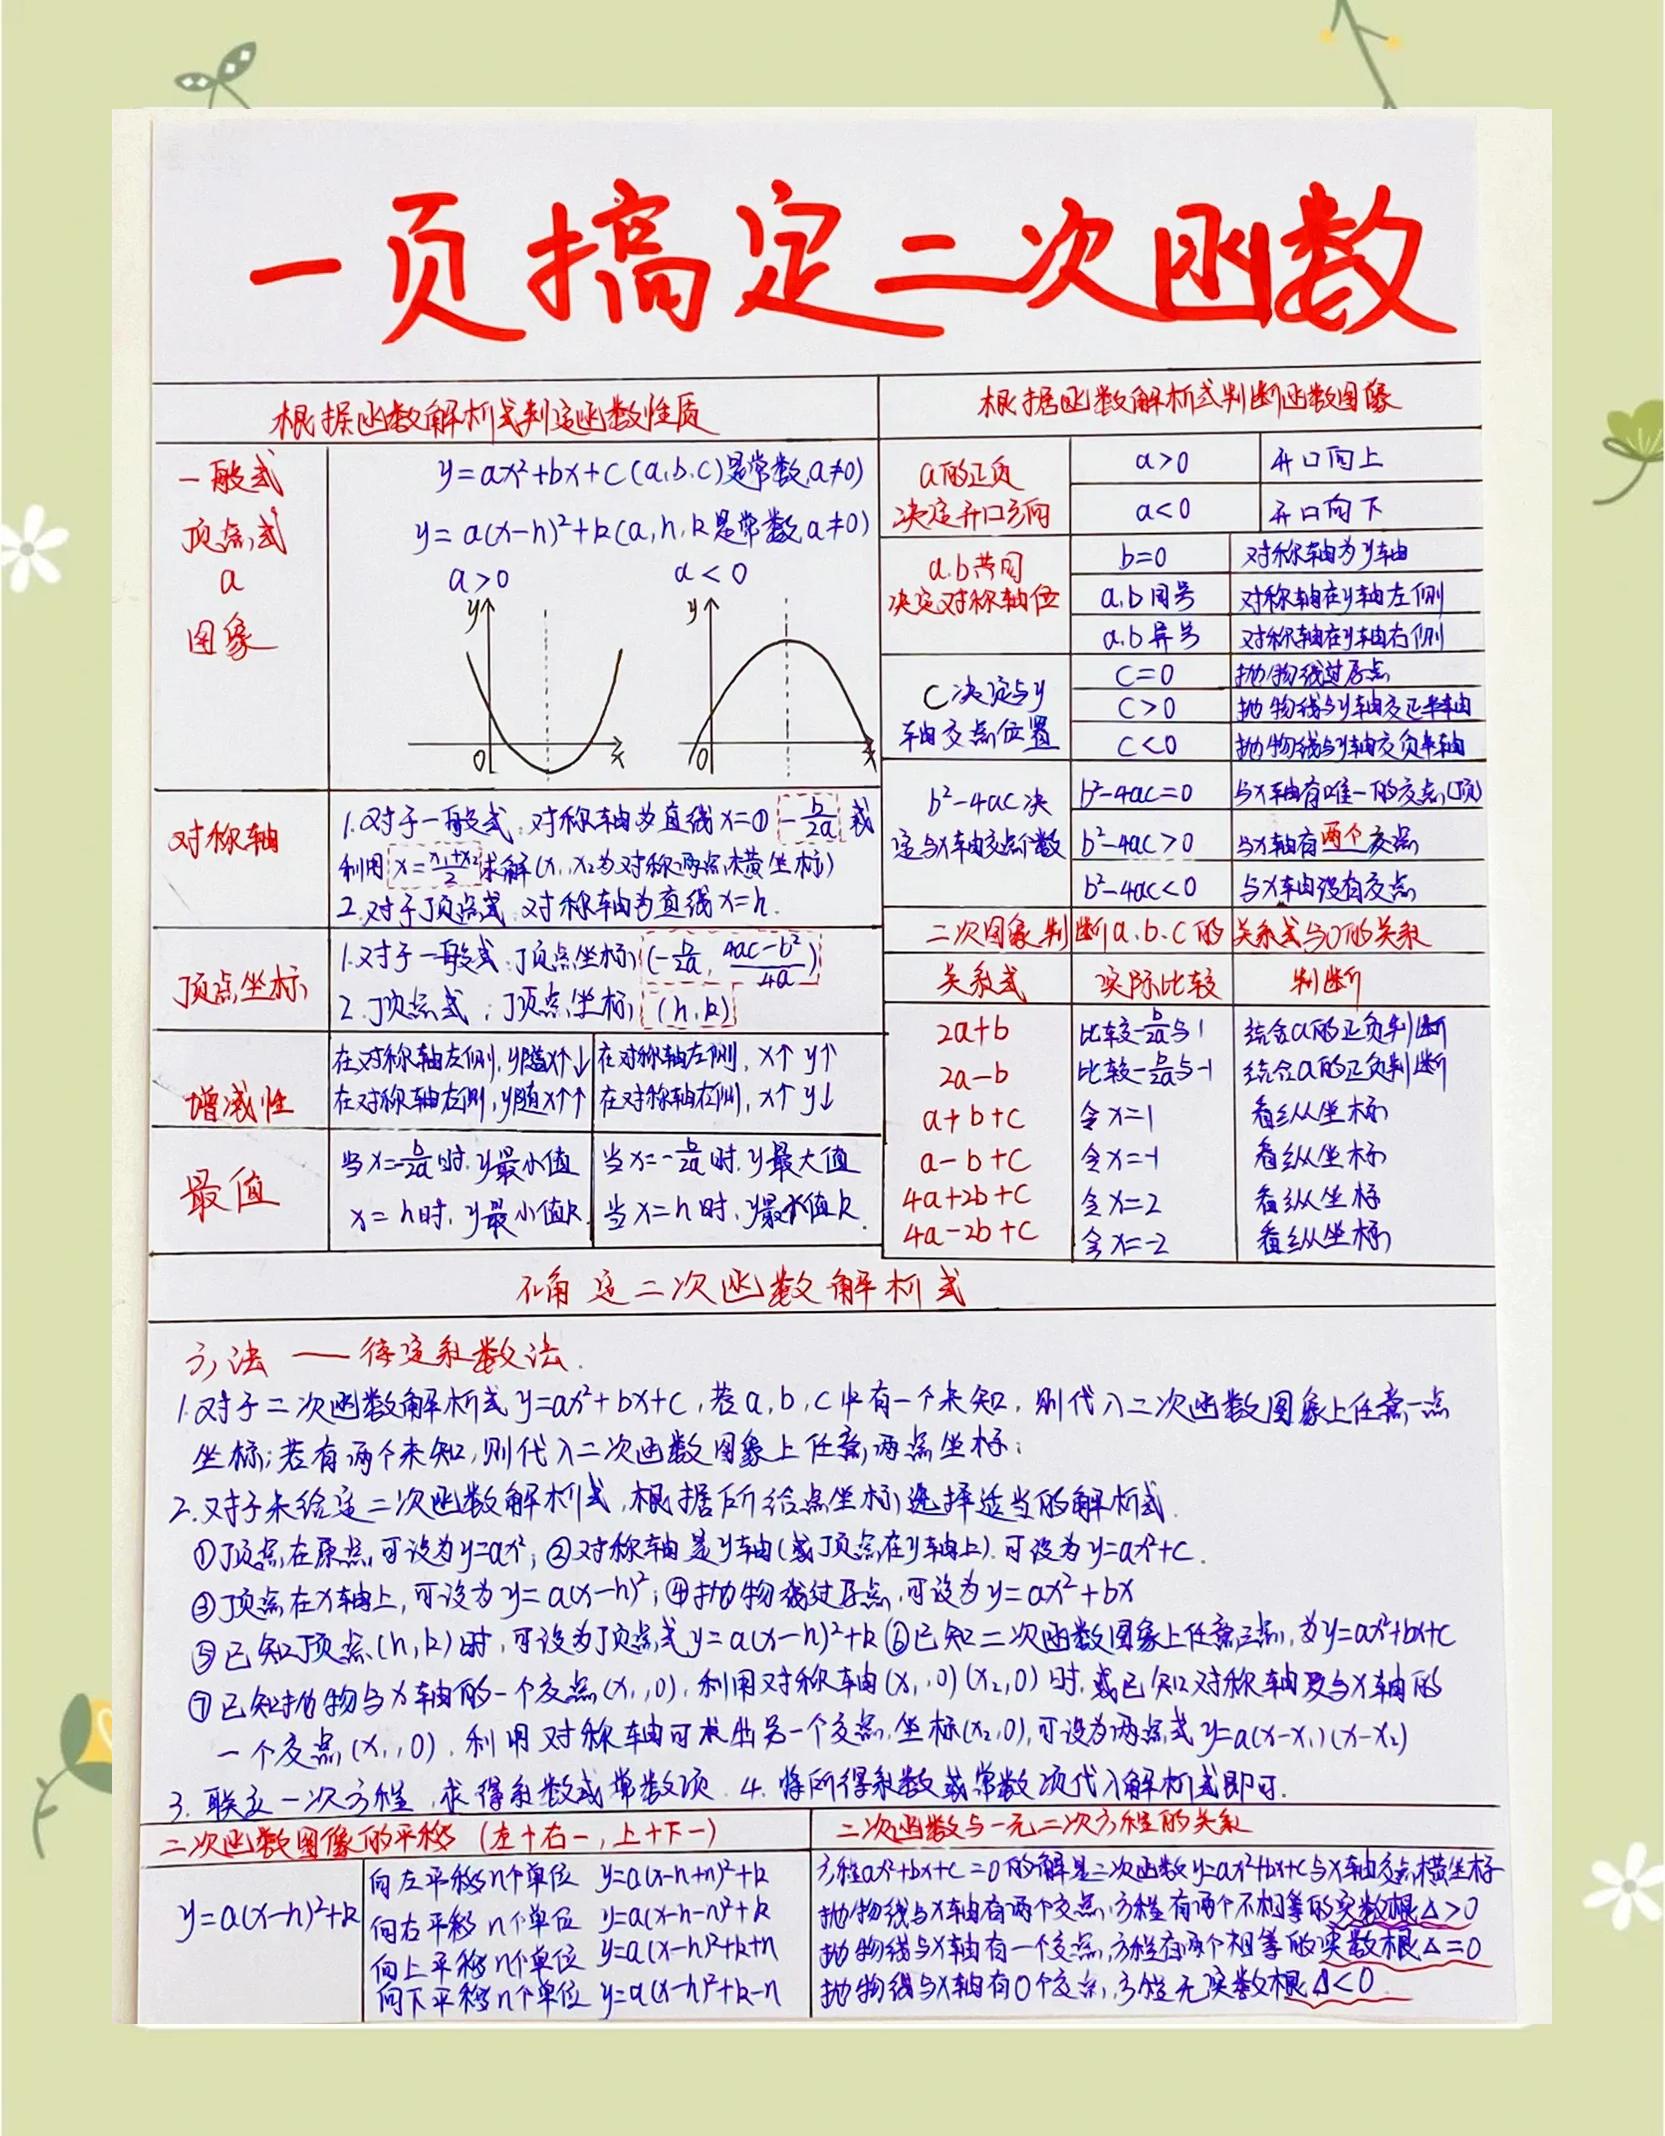 一页搞定二次函数
根据函数解析式判定函数性质
一般式
y=ax²+bx+c(a,b,c)是常数,a≠0)
顶点式
y=a(x-h)²+k(a,h,k是常数,a≠0)
a
图象
a>0
a<0
y
0
x
y
0
x
对称轴
1.对于一般式:对称轴为直线x=① -b/2a 或
利用 x=(x₁+x₂)/2 求解(x₁,x₂为对称两点横坐标)
2.对于顶点式:对称轴为直线x=h.
顶点坐标
1.对于一般式:顶点坐标(-b/2a, (4ac-b²)/4a)
2.顶点式:顶点坐标(h,k)
增减性
在对称轴左侧,y随x↑↓
在对称轴右侧,y随x↑↑
在对称轴左侧,x↑y↑
在对称轴右侧,x↑y↓
最值
当x=-b/2a时.y最小值
x=h时,y最小值k.
当x=-b/2a时.y最大值
当x=h时,y最大值k.
根据函数解析式判断函数图象
a的正负
决定开口方向
a>0
开口向上
a<0
开口向下
a.b共同
决定对称轴位
b=0
对称轴为y轴
a.b同号
对称轴在y轴左侧
a.b异号
对称轴在y轴右侧
C决定与y
轴交点位置
C=0
抛物线过原点
C>0
抛物线与y轴交正半轴
C<0
抛物线与y轴交负半轴
b²-4ac决
定与x轴交点个数
b²-4ac=0
与x轴有唯一的交点(顶)
b²-4ac>0
与x轴有两个交点
b²-4ac<0
与x轴没有交点
二次图象判断a.b.c的关系式与0的关系
关系式
实际比较
判断
2a+b
比较-b/2a与1
结合a的正负判断
2a-b
比较-b/2a与-1
结合a的正负判断
a+b+c
令x=1
看纵坐标
a-b+c
令x=-1
看纵坐标
4a+2b+c
令x=2
看纵坐标
4a-2b+c
令x=-2
看纵坐标
确定二次函数解析式
方法——待定系数法.
1.对于二次函数解析式y=ax²+bx+c,若a,b,c中有一个未知,则代入二次函数图象上任意一点
坐标;若有两个未知,则代入二次函数图象上任意两点坐标;
2.对于未给定二次函数解析式,根据所给点坐标选择适当的解析式.
①顶点在原点,可设为y=ax²;②对称轴是y轴(或顶点在y轴上).可设为y=ax²+c.
③顶点在x轴上,可设为y=a(x-h)²;④抛物线过原点,可设为y=ax²+bx
⑤已知顶点(h,k)时,可设为顶点式y=a(x-h)²+k⑥已知二次函数图象上任意三点,为y=ax²+bx+c
⑦已知抛物与x轴的一个交点(x₁,0),利用对称轴(x₁,0)(x₂,0)时,或已知对称轴及与x轴的
一个交点(x₁,0),利用对称轴可求出另一个交点坐标(x₂,0),可设为两点式y=a(x-x₁)(x-x₂)
3.联立一次方程,求得系数或常数项.4.将所得系数或常数项代入解析式即可.
二次函数图像的平移(左+右-,上+下-)
y=a(x-h)²+k
向左平移n个单位 y=a(x-h+n)²+k
向右平移n个单位 y=a(x-h-n)²+k
向上平移n个单位 y=a(x-h)²+k+n
向下平移n个单位 y=a(x-h)²+k-n
二次函数与一元二次方程的关系
方程ax²+bx+c=0的解是二次函数y=ax²+bx+c与x轴交点横坐标
抛物线与x轴有两个交点,方程有两个不相等的实数根△>0
抛物线与x轴有一个交点,方程有两个相等的实数根△=0
抛物线与x轴有0个交点,方程无实数根△<0